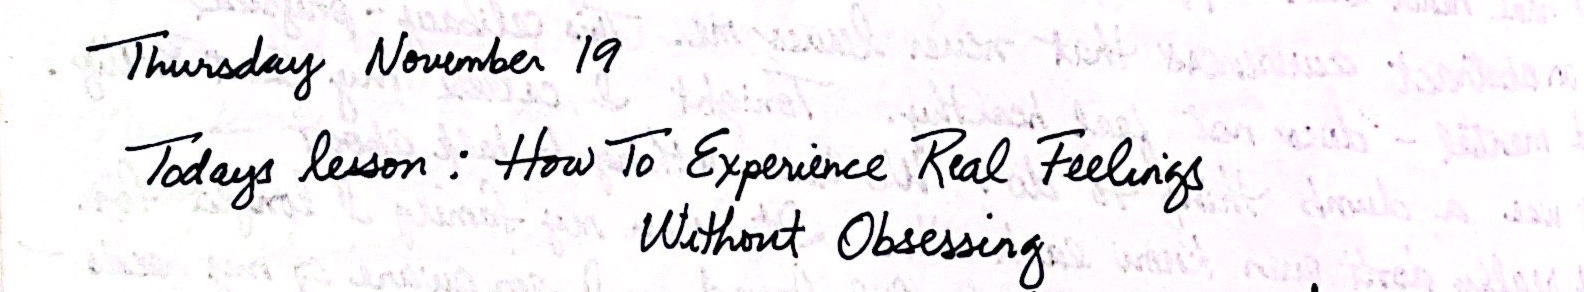 Thursday November 19
Todays lesson: How To Experience Real Feelings
Without Obsessing